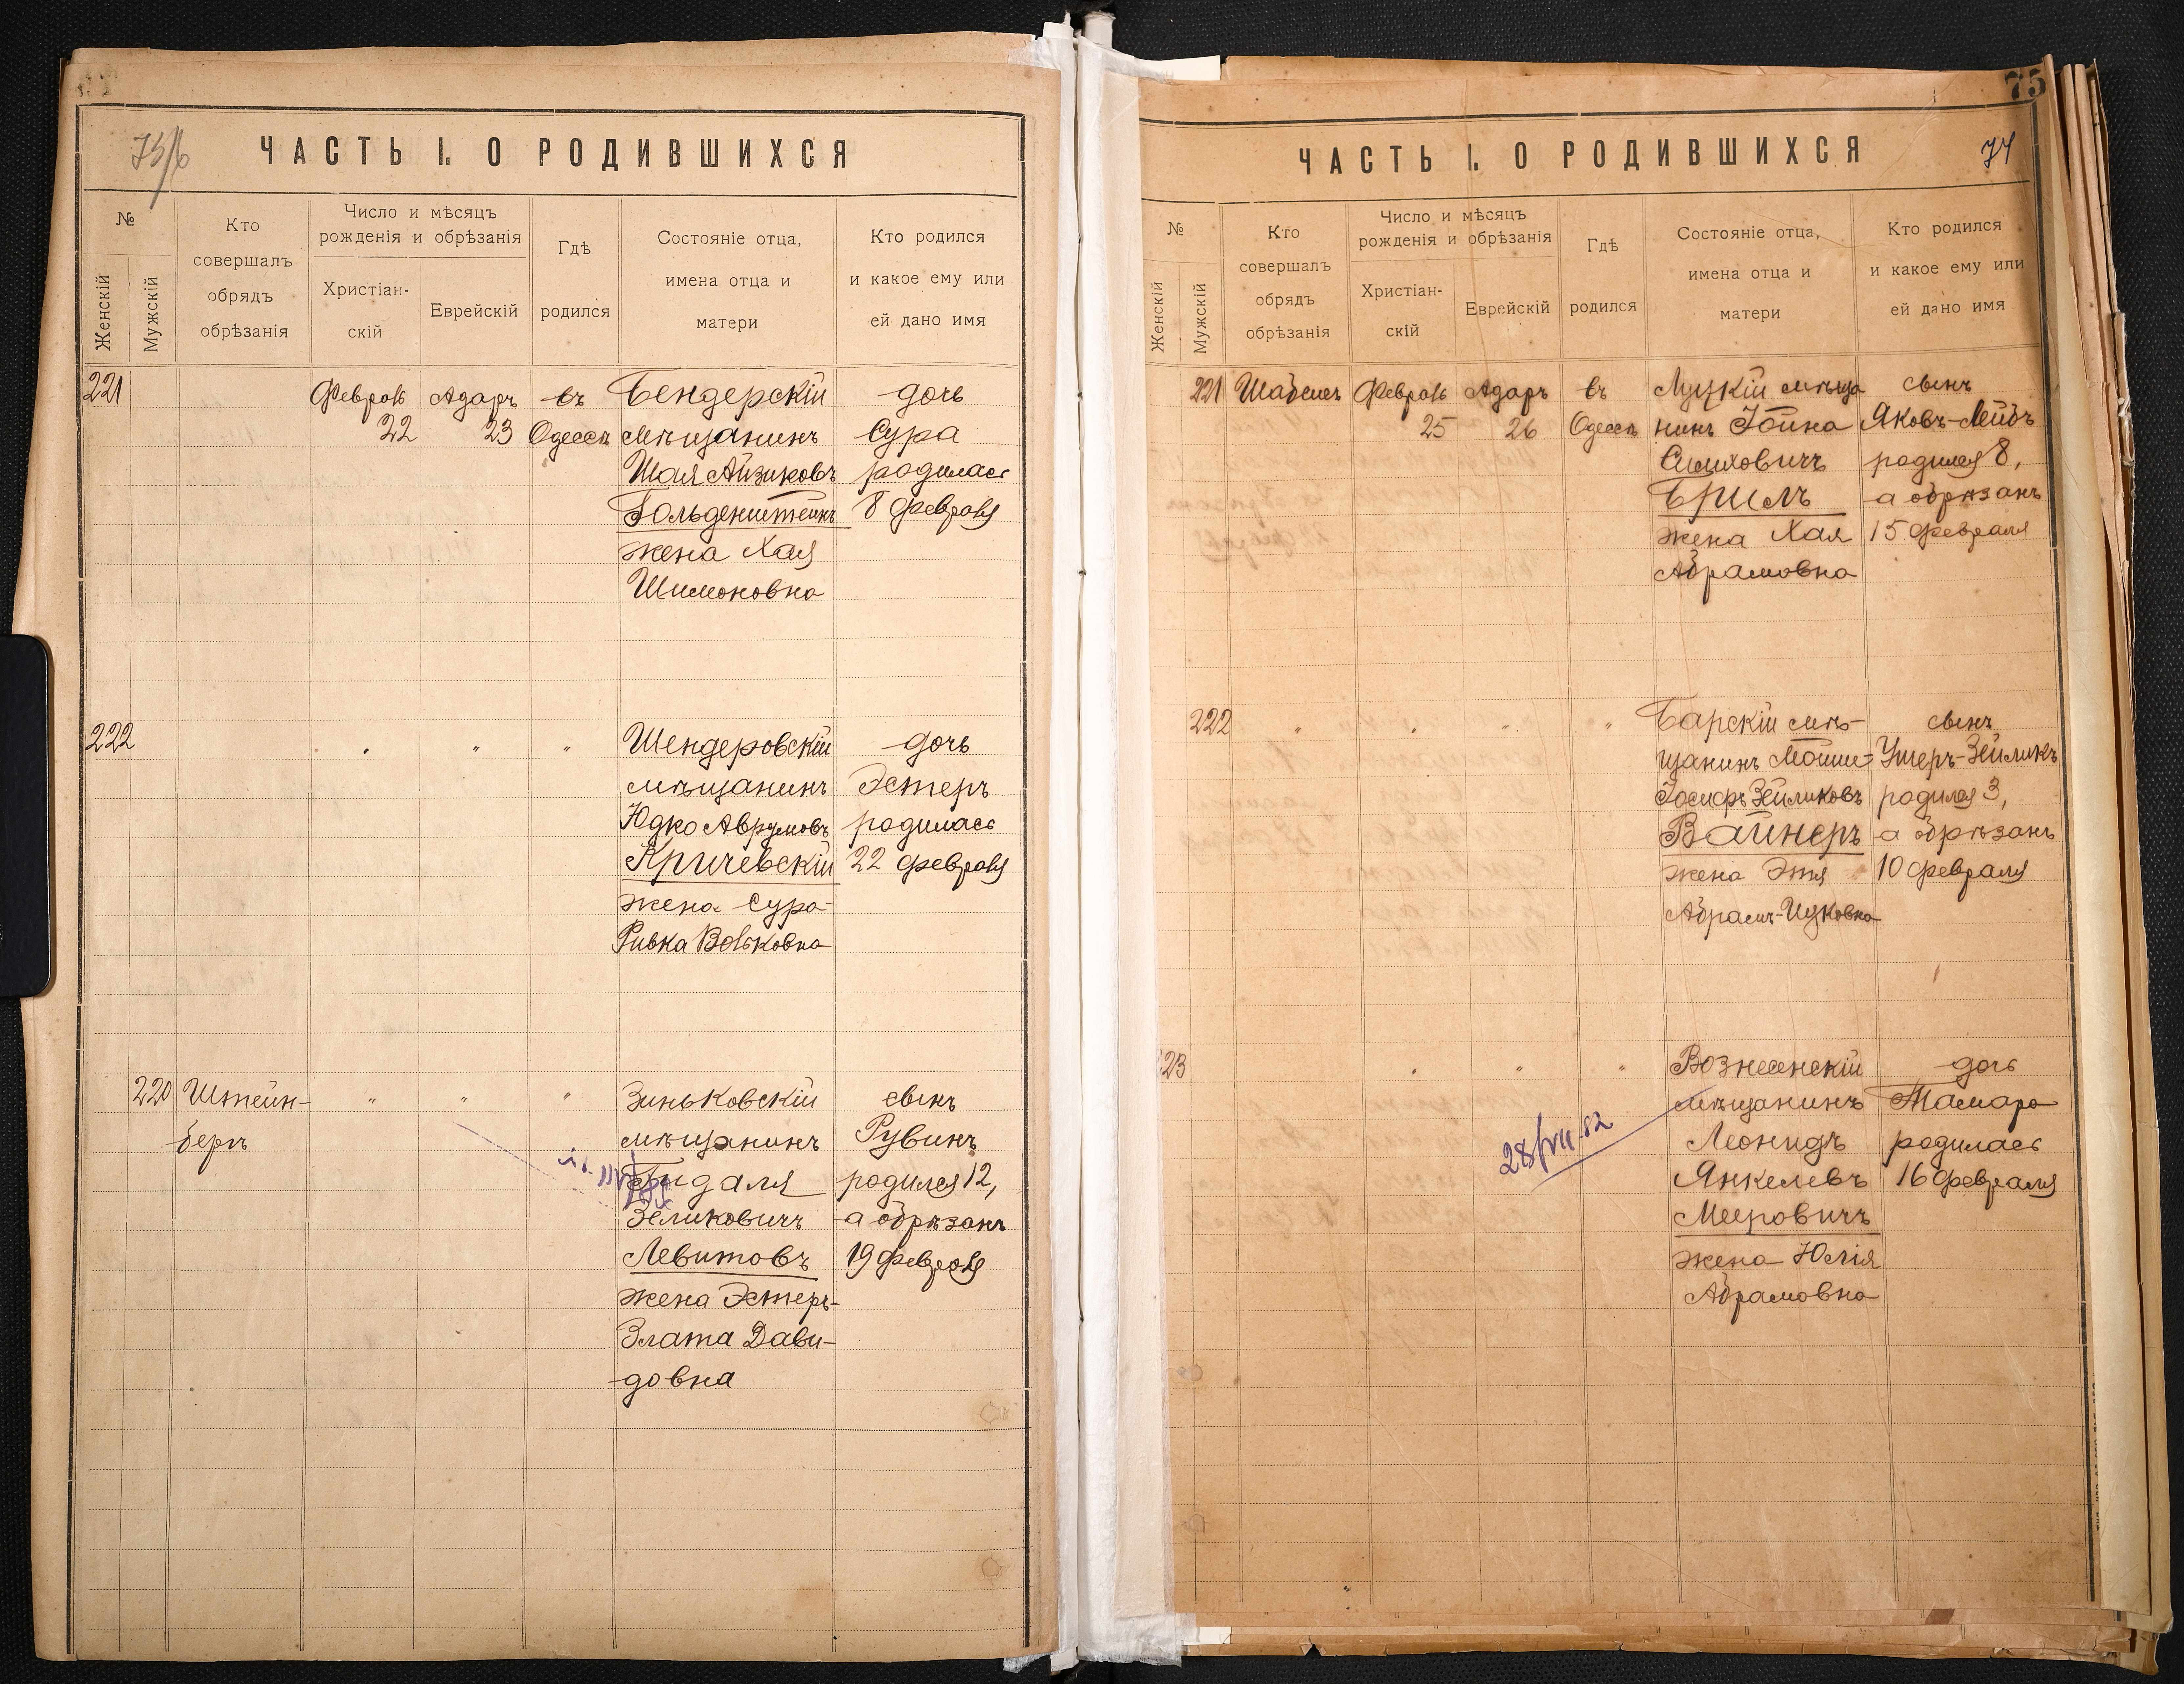 ЧАСТЬ I. О РОДИВШИХСЯ
№
Женскій
Мужскій
Кто
совершалъ
обрядъ
обрѣзанія
Число и мѣсяцъ
рожденія и обрѣзанія
Христіан-
скій
Еврейскій
Гдѣ
родился
Состояніе отца,
имена отца и
матери
Кто родился
и какое ему или
ей дано имя
221 Феврaль Адаръ въ Бендерскій дочь
22 23 Одессѣ мѣщанинъ Сура
Шая Айзиковъ родилась
Гольденштейнъ 8 февраля
жена Хая
Шимоновна
222 " " " Шендеровскій дочь
мѣщанинъ Эстеръ
Юдко Аврумовъ родилась
Кричевскій 22 февраля
жена Сура-
Ривка Вольковна
220 Штейн- " " " Зиньковскій сынъ
бергъ мѣщанинъ Рувинъ
Гидаля родился 12,
Зеликовичъ а обрѣзанъ
Левитовъ 19 февраля
жена Эстеръ-
Злата Дави-
довна
75
ЧАСТЬ I. О РОДИВШИХСЯ 74
№
Женскій
Мужскій
Кто
совершалъ
обрядъ
обрѣзанія
Число и мѣсяцъ
рожденія и обрѣзанія
Христіан-
скій
Еврейскій
Гдѣ
родился
Состояніе отца,
имена отца и
матери
Кто родился
и какое ему или
ей дано имя
221 Февраль Адаръ въ Луцкій мѣща сынъ
25 26 Одессѣ нинъ Іойна Яковъ-Лейбъ
родился 8,
Бриль а обрѣзанъ
жена Хая 15 февраля
Абрамовна
222 " " " " Барскій мѣ- сынъ
щанинъ Мошe- Ушеръ-Зейликъ
Іосифъ Зейликовъ родился 3,
Вайнеръ а обрѣзанъ
жена Этя 10 февраля
Абрамъ-Ицковна
23 " " " Вознесенскій дочь
мѣщанинъ Тамара
28/VII-52
Леонидъ родилась
Янкелевъ 16 февраля
Мееровичъ
жена Юлія
Абрамовна